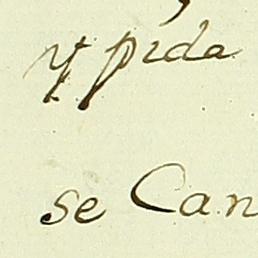 y pida
se Can